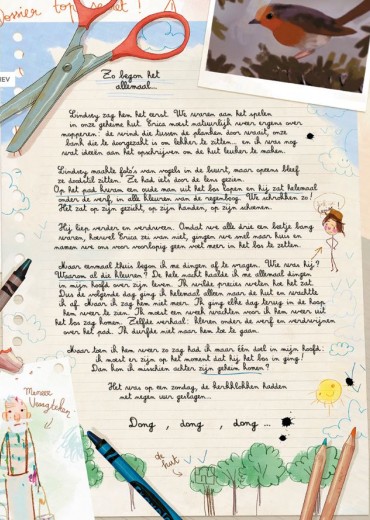 Dossier top secret !
IEV
Zo begon het
allemaal...
Lindsey zag hem het eerst. We waren aan het spelen
in onze geheime hut. Erica moest natuurlijk weer ergens over
mopperen: de wind die tussen de planken door waait, onze
bank die te doorgezakt is om lekker te zitten... en ik was nog
wat ideeën aan het opschrijven om de hut leuker te maken.
Lindsey maakte foto's van vogels in de buurt, maar opeens bleef
ze doodstil zitten. Ze had iets door de lens gezien.
Op het pad kwam een oude man uit het bos lopen en hij zat helemaal
onder de verf, in alle kleuren van de regenboog. We schrokken zo!
Het zat op zijn gezicht, op zijn handen, op zijn schoenen.
Hij liep verder en verdween. Omdat we alle drie een beetje bang
waren, hoewel Erica zei van niet, gingen we snel naar huis en
namen we ons voor voorlopig geen voet meer in het bos te zetten.
Maar eenmaal thuis begon ik me dingen af te vragen. Wie was hij?
Waarom al die kleuren? De hele nacht haalde ik me allemaal dingen
in mijn hoofd over zijn leven. Ik wilde precies weten hoe het zat.
Dus de volgende dag ging ik helemaal alleen naar de hut en wachtte
ik af. Maar ik zag hem niet meer. Ik ging elke dag terug in de hoop
hem weer te zien. Ik moest een week wachten voor ik hem weer uit
het bos zag komen. Zelfde verhaal: kleren onder de verf en verdwijnen
over het pad. Ik durfde niet naar hem toe te gaan.
Maar toen ik hem weer zo zag had ik maar één doel in mijn hoofd:
ik moest er zijn op het moment dat hij het bos in ging!
Dan kon ik misschien achter zijn geheim komen?
Het was op een zondag, de kerkklokken hadden
net negen uur geslagen...
Dong , dong , dong ...
Meneer
Veegteken
de
hut